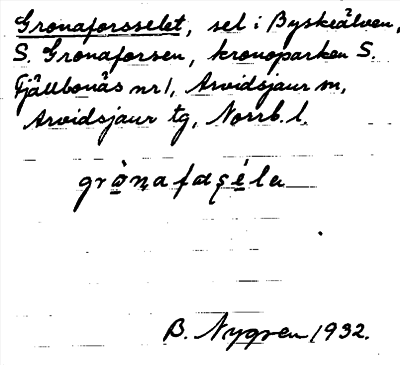 Gronaforsselet, sel i Byskeälven,
S. Gronaforsen, kronoparken S.
Fjällbonäs nr 1, Arvidsjaur sn,
Arvidsjaur tg, Norrb. l.
grònafaşéla
B. Nygren 1932.